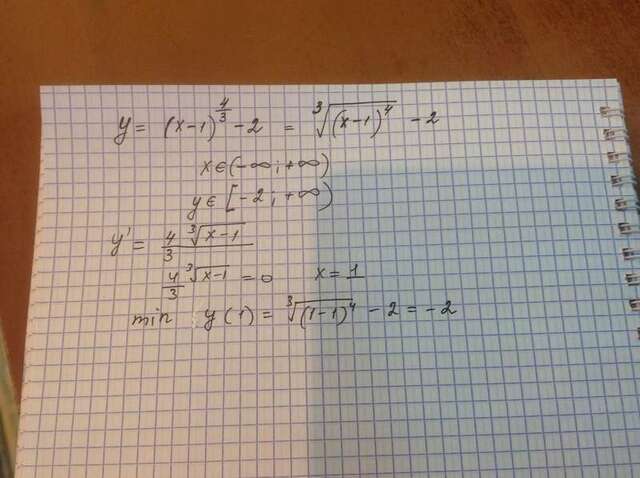 y = (x-1)^{4/3} - 2 = ∛((x-1)^4) - 2
x ∈ (-∞; +∞)
y ∈ [-2; +∞)
y' = 4/3 ∛(x-1)
4/3 ∛(x-1) = 0 x = 1
min y(1) = ∛((1-1)^4) - 2 = -2